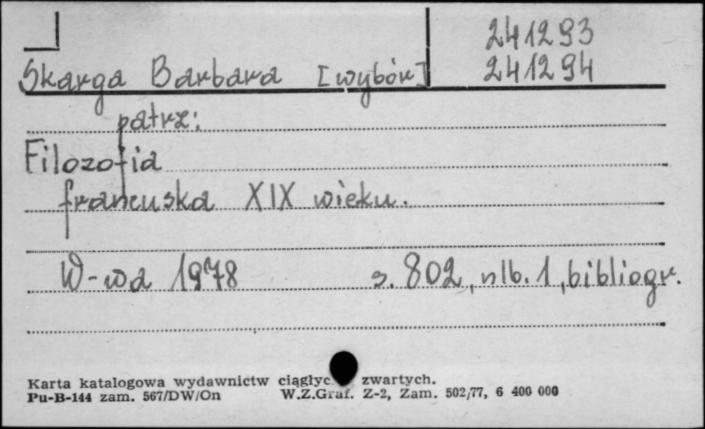 241293
Skarga Barbara [wybór] 241294
patrz:
Filozofia
francuska XIX wieku.
W-wa 1978 s. 802, nlb. 1, bibliogr.
Karta katalogowa wydawnictw zwartych.
Pu-B-144 zam. 567/DW/On W.Z.Graf. Z-2, Zam. 502/77, 6 400 000